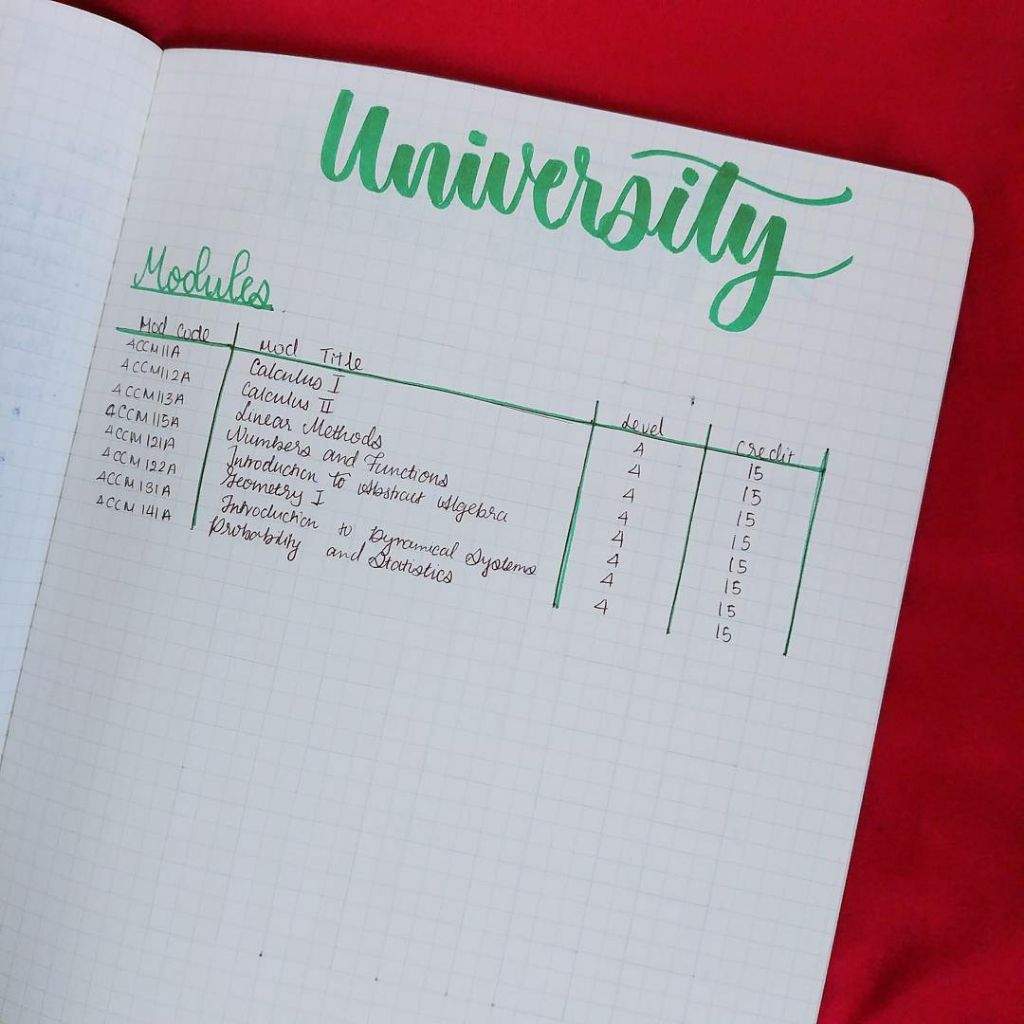 University
Modules
Mod Code Mod Title Level Credit
4CCM11A Calculus I 4 15
4CCM112A Calculus II 4 15
4CCM113A Linear Methods 4 15
4CCM115A Numbers and Functions 4 15
4CCM121A Introduction to Abstract Algebra 4 15
4CCM122A Geometry I 4 15
4CCM131A Introduction to Dynamical Systems 4 15
4CCM141A Probability and Statistics 4 15